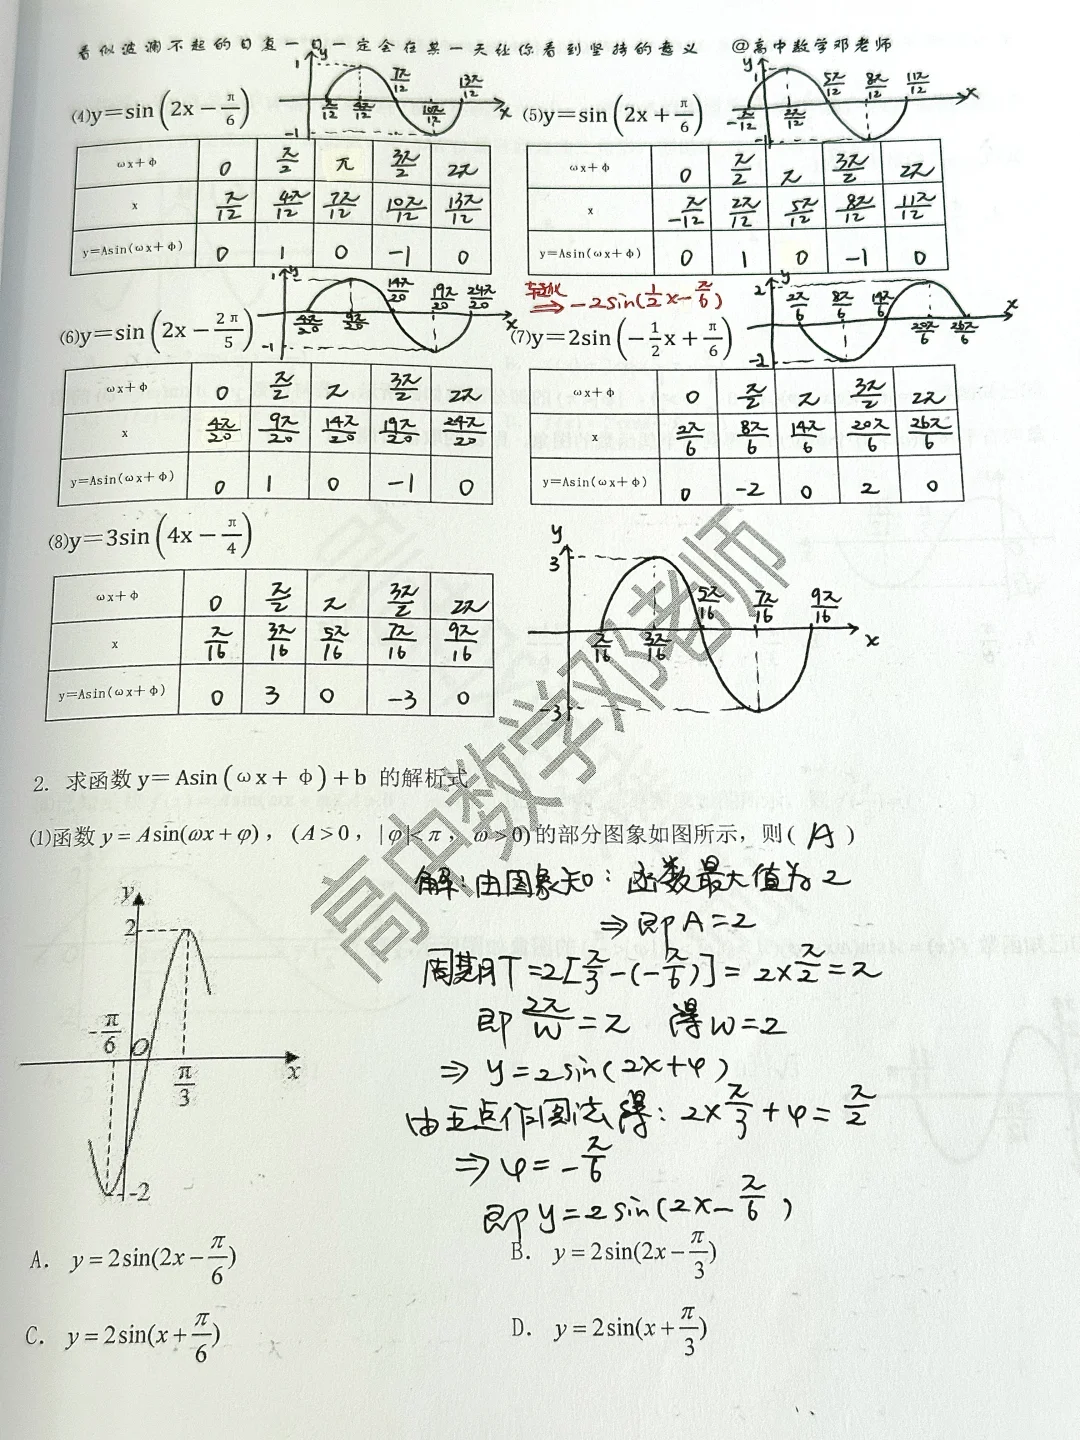 看似波澜不起的日复一日一定会在某一天让你看到坚持的意义 @高中数学邓老师
⑷y=sin(2x-π/6)
y
1
-1
π/12
4π/12
7π/12
10π/12
13π/12
x
ωx+φ 0 π/2 π 3π/2 2π
x π/12 4π/12 7π/12 10π/12 13π/12
y=Asin(ωx+φ) 0 1 0 -1 0
⑸y=sin(2x+π/6)
y
1
-1
-π/12
2π/12
5π/12
8π/12
11π/12
x
ωx+φ 0 π/2 π 3π/2 2π
x -π/12 2π/12 5π/12 8π/12 11π/12
y=Asin(ωx+φ) 0 1 0 -1 0
⑹y=sin(2x-2π/5)
y
1
-1
4π/20
9π/20
14π/20
19π/20
24π/20
x
ωx+φ 0 π/2 π 3π/2 2π
x 4π/20 9π/20 14π/20 19π/20 24π/20
y=Asin(ωx+φ) 0 1 0 -1 0
⇒ -2sin(1/2x-π/6)
⑺y=2sin(-1/2x+π/6)
y
2
-2
2π/6
8π/6
14π/6
20π/6
26π/6
x
ωx+φ 0 π/2 π 3π/2 2π
x 2π/6 8π/6 14π/6 20π/6 26π/6
y=Asin(ωx+φ) 0 -2 0 2 0
⑻y=3sin(4x-π/4)
ωx+φ 0 π/2 π 3π/2 2π
x π/16 3π/16 5π/16 7π/16 9π/16
y=Asin(ωx+φ) 0 3 0 -3 0
y
3
-3
π/16
3π/16
5π/16
7π/16
9π/16
x
高中数学邓老师
2. 求函数y=Asin(ωx+φ)+b 的解析式
⑴函数y=Asin(ωx+φ),(A>0,|φ|<π,ω>0)的部分图象如图所示,则( A )
y
2
-π/6
O
π/3
x
-2
解:由图象知:函数最大值为2
⇒即A=2
周期T=2[π/3-(-π/6)]=2×π/2=π
即2π/W=π 得W=2
⇒ y=2sin(2x+φ)
由五点作图法得:2×π/3+φ=π/2
⇒ φ=-π/6
即y=2sin(2x-π/6)
A. y=2sin(2x-π/6)
B. y=2sin(2x-π/3)
C. y=2sin(x+π/6)
D. y=2sin(x+π/3)